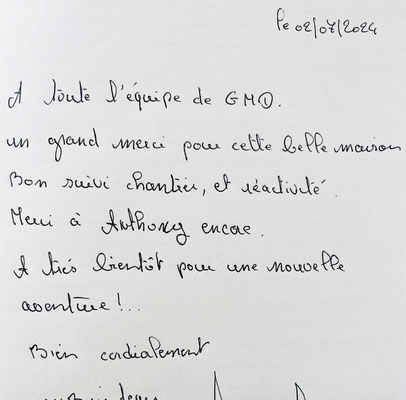 le 02/07/2024
A toute l'équipe de GMD.
un grand merci pour cette belle maison
Bon suivi chantier, et réactivité.
Merci à Anthony encore.
A très bientôt pour une nouvelle
aventure!...
Bien cordialement